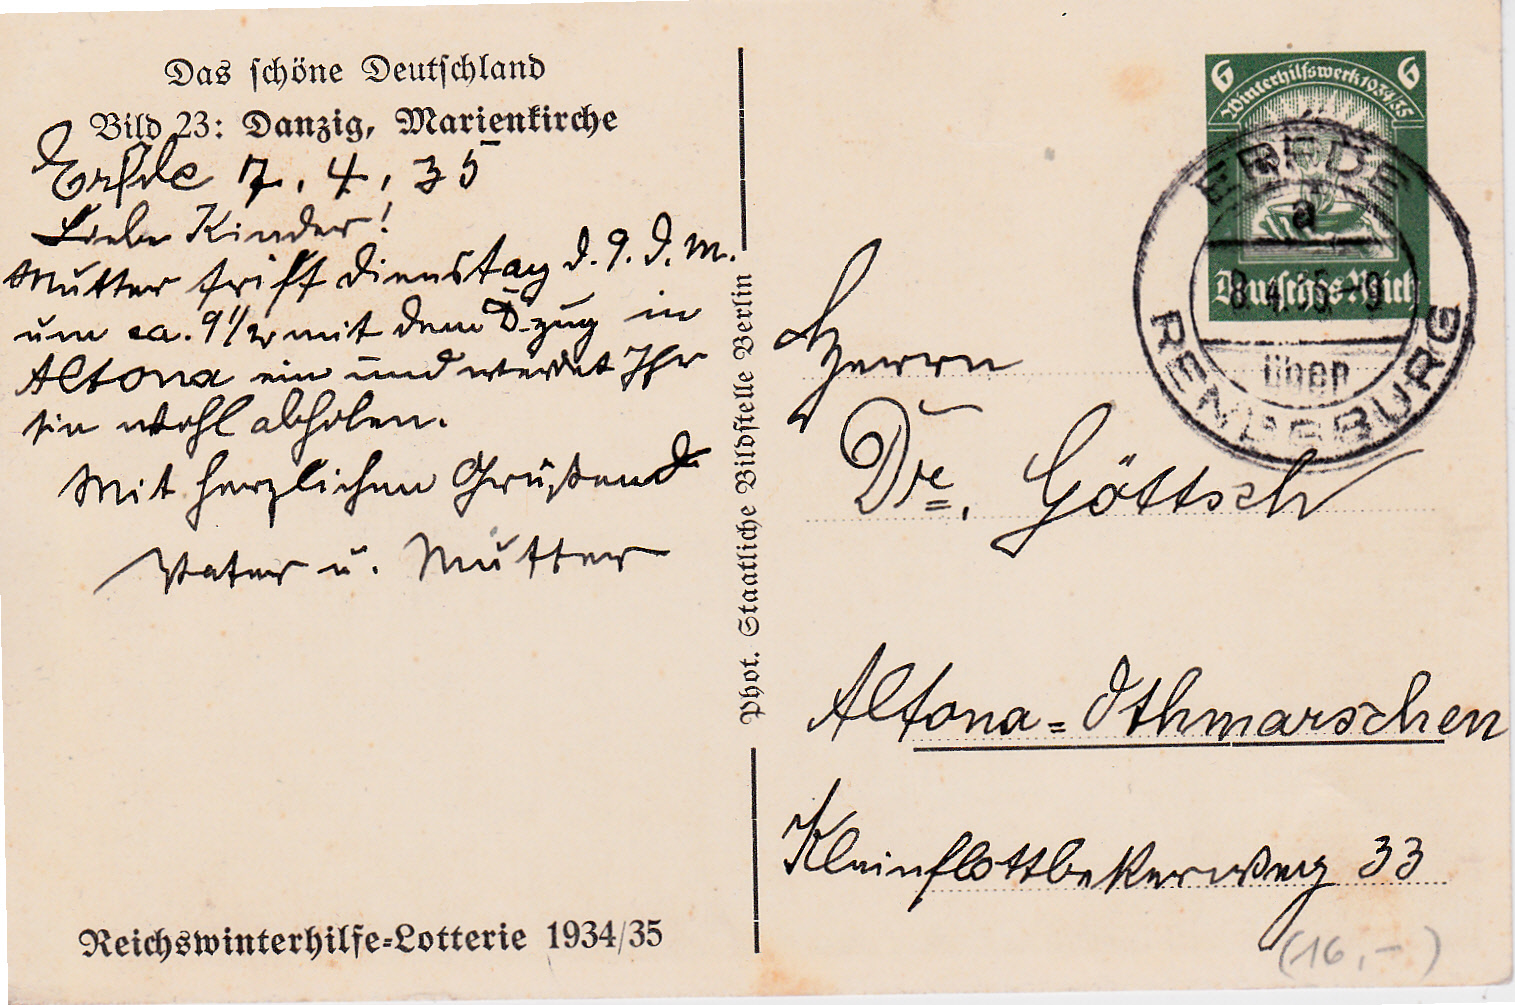 Das schöne Deutschland
Bild 23: Danzig, Marienkirche
Erfde 7. 4. 35
Liebe Kinder!
Mutter trifft Dienstag d. 9. d. M.
um ca. 9 1/2 mit dem D-zug in
Altona ein und werdet Ihr
sie wohl abholen.
Mit herzlichen Grüßen
Vater u. Mutter
Reichswinterhilfe=Lotterie 1934/35
Phot. Staatliche Bildstelle Berlin
6 6
Winterhilfswerk 1934/35
Deutsches Reich
ERFDE
a
8.4.35.-9
über
RENDSBURG
Herrn
Dr. Göttsch
Altona=Othmarschen
Kleinflottbekerweg 33
(16,-)